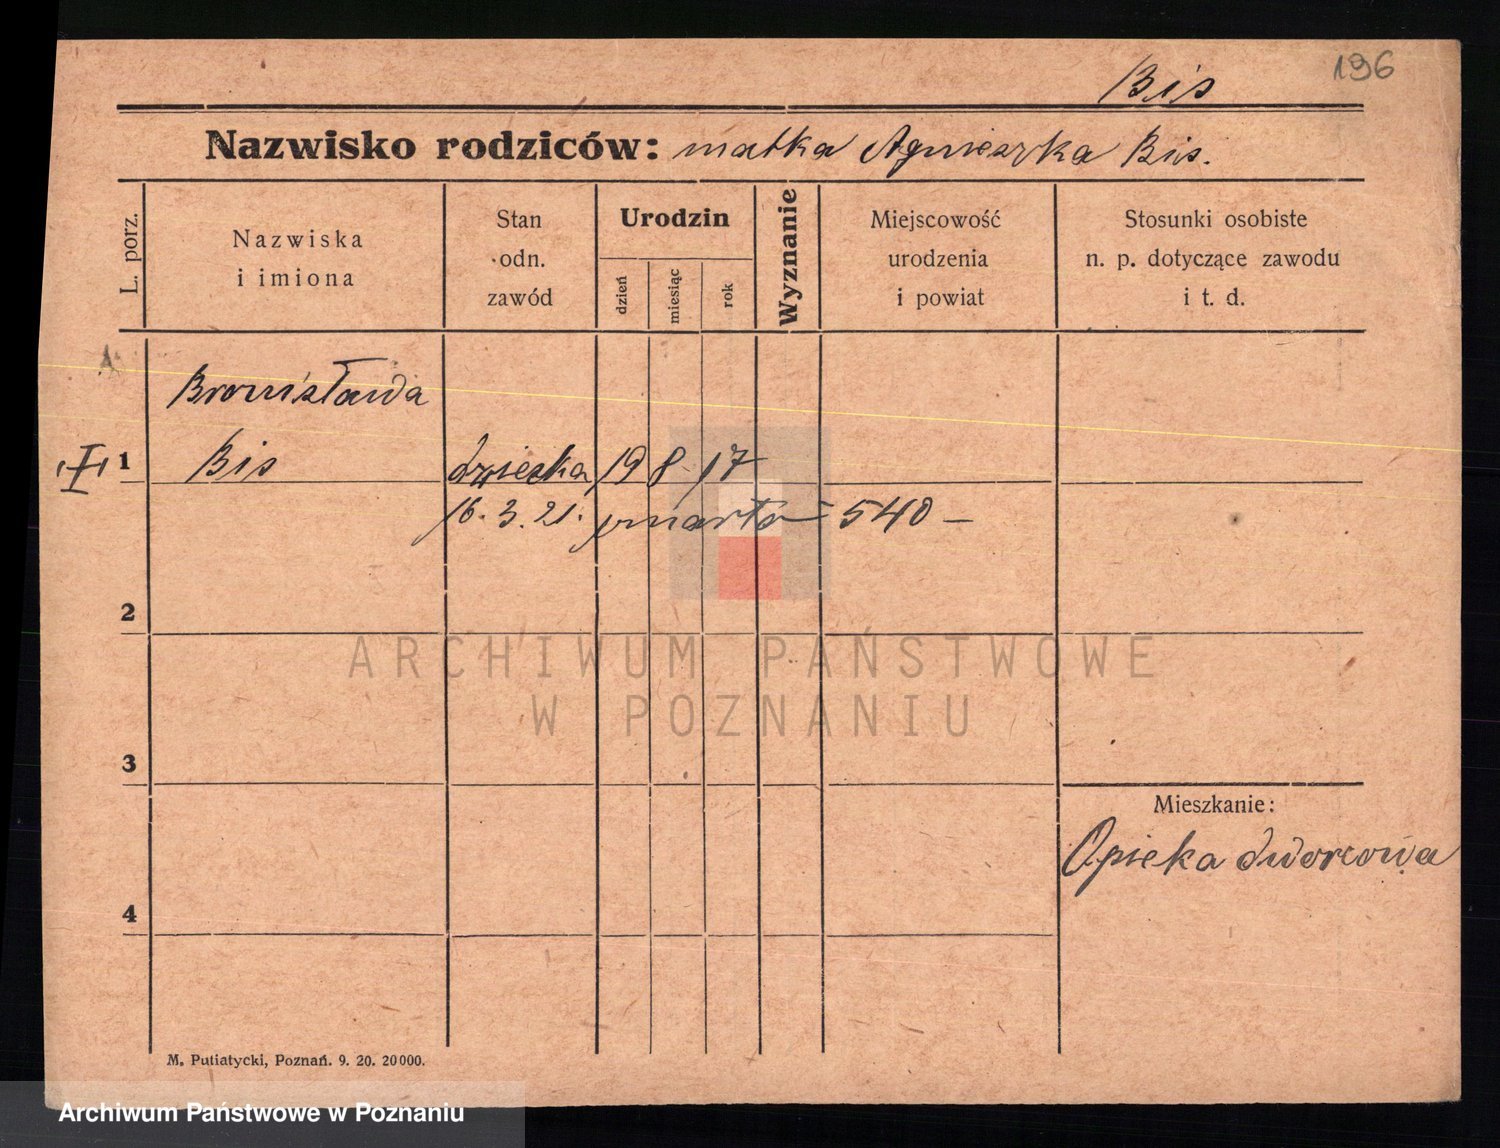 196
Bis
Nazwisko rodziców: matka Agnieszka Bis.
L. porz.
Nazwiska
i imiona
Stan
odn.
zawód
Urodzin
dzień
miesiąc
rok
Wyznanie
Miejscowość
urodzenia
i powiat
Stosunki osobiste
n. p. dotyczące zawodu
i t. d.
Bronisława
1 Bis 19 8 17
16. 3. 21. zmarła 540 —
2
3
4
Mieszkanie:
Opieka dworcowa
M. Putiatycki, Poznań. 9. 20. 20000.
ARCHIWUM PAŃSTWOWE
W POZNANIU
Archiwum Państwowe w Poznaniu